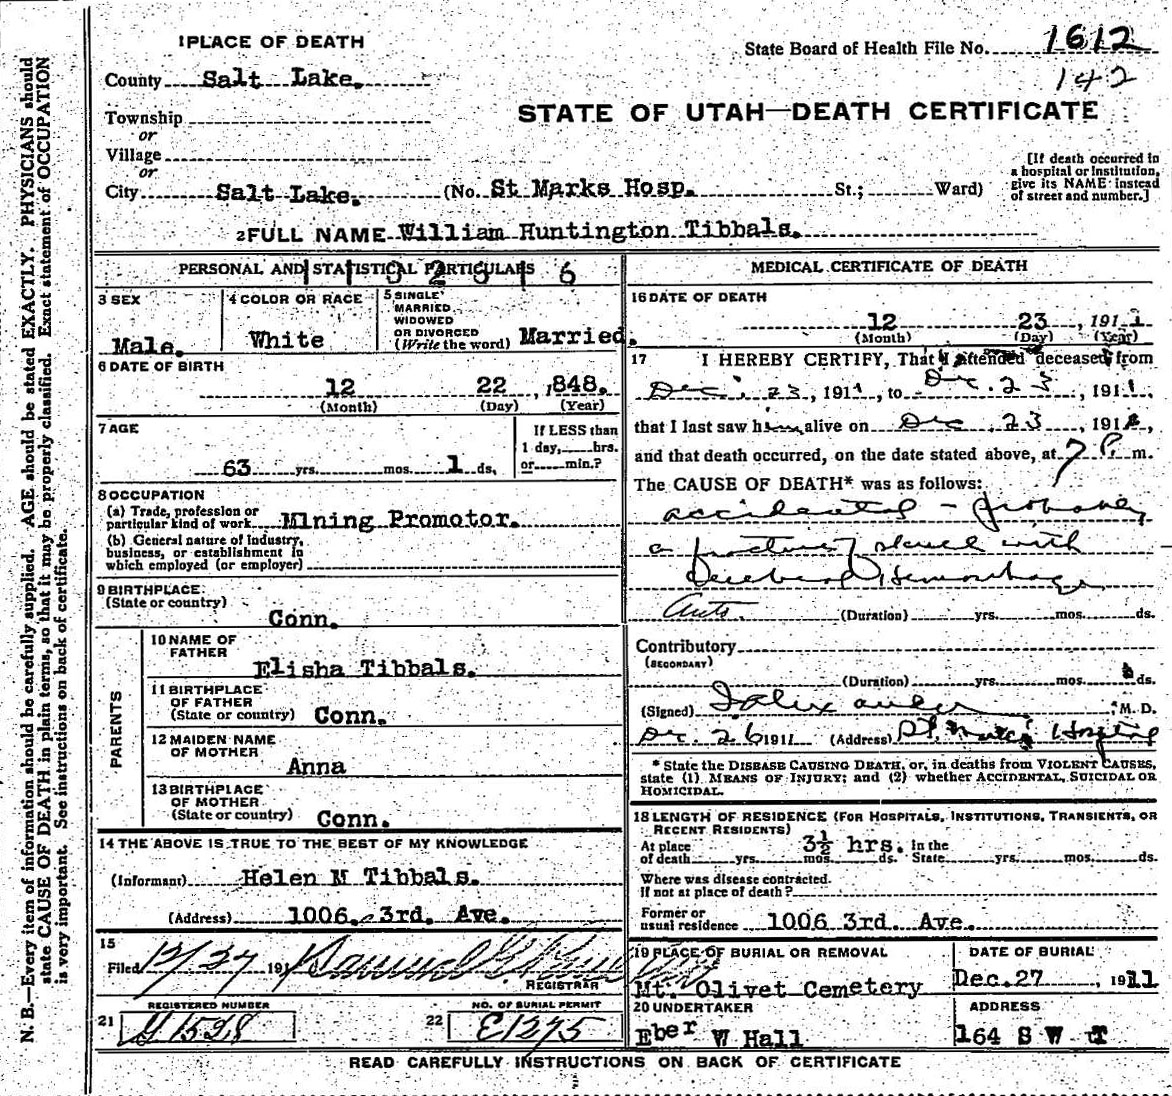 1 PLACE OF DEATH
State Board of Health File No. 1612
142
County Salt Lake.
STATE OF UTAH—DEATH CERTIFICATE
Township
or
Village
or
City Salt Lake. (No. St Marks Hosp. St.; Ward)
[If death occurred in
a hospital or institution,
give its NAME instead
of street and number.]
2 FULL NAME William Huntington Tibbals.
PERSONAL AND STATISTICAL PARTICULARS
3 SEX
Male.
4 COLOR OR RACE
White
5 SINGLE
MARRIED
WIDOWED
OR DIVORCED
(Write the word) Married.
6 DATE OF BIRTH
12 22 , 1848.
(Month) (Day) (Year)
7 AGE
63 yrs. mos. 1 ds.
If LESS than
1 day, hrs.
or min.?
8 OCCUPATION
(a) Trade, profession or
particular kind of work Mining Promotor.
(b) General nature of industry,
business, or establishment in
which employed (or employer)
9 BIRTHPLACE
(State or country)
Conn.
PARENTS
10 NAME OF
FATHER
Elisha Tibbals.
11 BIRTHPLACE
OF FATHER
(State or country) Conn.
12 MAIDEN NAME
OF MOTHER
Anna
13 BIRTHPLACE
OF MOTHER
(State or country) Conn.
14 THE ABOVE IS TRUE TO THE BEST OF MY KNOWLEDGE
(Informant) Helen M Tibbals.
(Address) 1006 3rd. Ave.
15
Filed 12/27 191
REGISTRAR
REGISTERED NUMBER
21 1528
NO. OF BURIAL PERMIT
22 E1275
MEDICAL CERTIFICATE OF DEATH
16 DATE OF DEATH
12 23 , 1911
(Month) (Day) (Year)
17 I HEREBY CERTIFY, That I attended deceased from
Dec. 23, 1911, to Dec. 23, 1911,
that I last saw him alive on Dec. 23, 191 ,
and that death occurred, on the date stated above, at 7 P. m.
The CAUSE OF DEATH* was as follows:
accidental - probably
a fractured skull with
Cerebral Hemorrhage
Auto. (Duration) yrs. mos. ds.
Contributory
(SECONDARY)
(Duration) yrs. mos. ds.
(Signed) M. D.
Dec. 26 1911 (Address) St. Marks Hospital
* State the DISEASE CAUSING DEATH, or, in deaths from VIOLENT CAUSES,
state (1) MEANS OF INJURY; and (2) whether ACCIDENTAL, SUICIDAL OR
HOMICIDAL.
18 LENGTH OF RESIDENCE (FOR HOSPITALS, INSTITUTIONS, TRANSIENTS, OR
RECENT RESIDENTS)
At place
of death yrs. mos. ds. 3½ hrs. In the
State yrs. mos. ds.
Where was disease contracted.
If not at place of death?
Former or
usual residence 1006 3rd. Ave.
19 PLACE OF BURIAL OR REMOVAL
Mt. Olivet Cemetery
DATE OF BURIAL
Dec. 27 1911
20 UNDERTAKER
Eber W Hall
ADDRESS
164 S W T
READ CAREFULLY INSTRUCTIONS ON BACK OF CERTIFICATE
N. B.—Every item of information should be carefully supplied. AGE should be stated EXACTLY. PHYSICIANS should
state CAUSE OF DEATH in plain terms, so that it may be properly classified. Exact statement of OCCUPATION
is very important. See instructions on back of certificate.